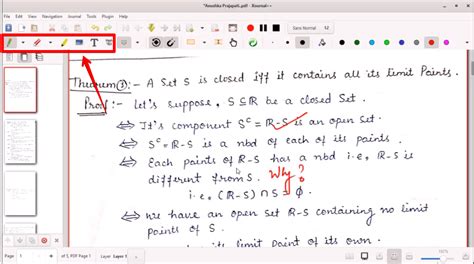 *Anushka Prajapati.pdf - Xournal++
Sans Regular 12
Theorem ①:- A Set S is closed iff it contains all its limit Points.
Proof:- Let's suppose, S⊆R be a closed Set.
⇔ It's component Sᶜ = R-S is an open set.
⇔ Sᶜ = R-S is a nbd of each of its points.
⇔ Each points of R-S has a nbd i.e. R-S is
different from S. Why?
i.e. (R-S) ∩ S = ϕ.
⇔ We have an open set R-S containing no limit
points of S.
its limit point of its own.
Page 1 of 5, PDF Page 1 Layer Layer 1